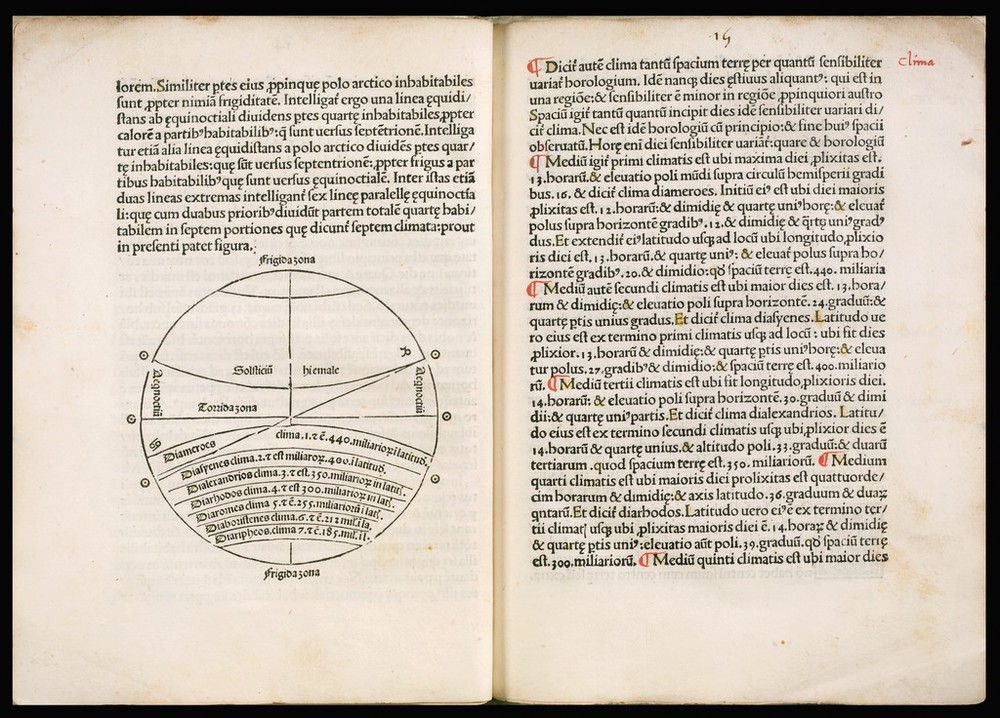 lorem.Similiter ptes eius ꝓpinquę polo arctico inhabitabiles
sunt ,ppter nimiã frigiditatẽ. Intelligať ergo una linea ęquidi/
stans ab ęquinoctiali diuidens ptes quartę inhabitabiles,ppter
calorẽ a partibꝰ habitabilibꝰ:q̃ sunt uersus septẽtrionẽ.Intelliga
tur etiã alia linea ęquidistans a polo arctico diuidẽs ptes quar/
tę inhabitabiles:quę sũt uersus septentrionẽ:,ppter frigus a par
tibus habitabilibꝰ quę sunt uersus ęquinoctialẽ. Inter istas etiã
duas lineas extremas intelliganť sex lineę parallelę ęquinoctia
li:quę cum duabus prioribꝰ diuidũt partem totalẽ quartę habi/
tabilem in septem portiones quę dicunť septem climata:prout
in presenti patet figura.
Frigida zona
Solsticiũ hiemale
Aeqnoctiũ
Aeqnoctiũ
Torrida zona
Diameroes clima.1.⁊ ẽ.440.miliarioꝝ ĩ latitud.
Diasyenes clima.2.⁊ est miliarioꝝ.400.ĩ latitud.
Dialexandrios clima.3.⁊ est.350.miliarioꝝ in latit.
Diarhodos clima.4.⁊ est 300.miliarioꝝ in lati.
Diaromes clima 5.⁊ ẽ.255.miliariorũ ĩ lati.
Diaboristenes clima.6.⁊ ẽ.212 mil.ĩ la.
Diaripheos clima 7.⁊ ẽ.185.mil.
Frigida zona
15
clima
¶ Diciť autẽ clima tantũ spacium terrę per quantũ sensibiliter
uariať horologium. Idẽ nanq̨ dies ęstiuus aliquantꝰ: qui est in
una regiõe:& sensibiliter ẽ minor in regiõe ,ppinquiori austro
Spaciũ igiť tantũ quantũ incipit dies idẽ sensibiliter uariari di/
ciť clima.Nec est idẽ horologiũ cũ principio:& fine huiꝰ spacii
obseruatũ.Horę eni diei sensibiliter uariãť:quare & horologiũ
¶ Mediũ igiť primi climatis est ubi maxima diei ,plixitas est.
13.horarũ.& eleuatio poli mũdi supra circulũ hemisperii gradi
bus.16.& diciť clima diameroes. Initiũ eiꝰ est ubi diei maioris
,plixitas est.12.horarũ:& dimidię & quartę uniꝰ horę:& eleuať
polus supra horizontẽ gradibꝰ.12.& dimidię & q̃rtę uniꝰ gradꝰ
dus.Et extendiť eiꝰ latitudo usq̨ ad locũ ubi longitudo,plixio
ris diei est.13.horarũ.& quartę uniꝰ: & eleuať polus supra ho/
rizontẽ gradibꝰ.20.& dimidio:qď spaciũ terrę est.440. miliaria
¶ Mediũ autẽ secundi climatis est ubi maior dies est. 13.hora/
rum & dimidię:& eleuatio poli supra horizontẽ.24.graduũ:&
quartę ptis unius gradus.Et diciť clima diasyenes.Latitudo ue
ro eius est ex termino primi climatis usq̨ ad locũ : ubi fit dies
,plixior.13.horarũ & dimidię:& quartę ptis uniꝰ horę:& eleua
tur polus.27.gradibꝰ & dimidio:& spaciũ terrę est.400.miliario
rũ. ¶ Mediũ tertii climatis est ubi fit longitudo,plixioris diei.
14.horarũ: & eleuatio poli supra horizontẽ.30.graduũ & dimi
dii:& quartę uniꝰ partis.Et diciť clima dialexandrios. Latitu/
do eius est ex termino secundi climatis usq̨ ubi,plixior dies ẽ
14.horarũ & quartę unius.& altitudo poli.33.graduũ:& duarũ
tertiarum .quod spacium terrę est.350.miliariorũ. ¶ Medium
quarti climatis est ubi maioris diei prolixitas est quattuorde/
cim horarum & dimidię:& axis latitudo.36.graduum & duaꝝ
qntarũ.Et diciť diarhodos.Latitudo uero eiꝰ ẽ ex termino ter/
tii climať usq̨ ubi ,plixitas maioris diei ẽ.14.horaꝝ & dimidię
& quartę ptis uniꝰ:eleuatio aũt poli.39.graduũ.qď spaciũ terrę
est.300.miliariorũ. ¶ Mediũ quinti climatis est ubi maior dies